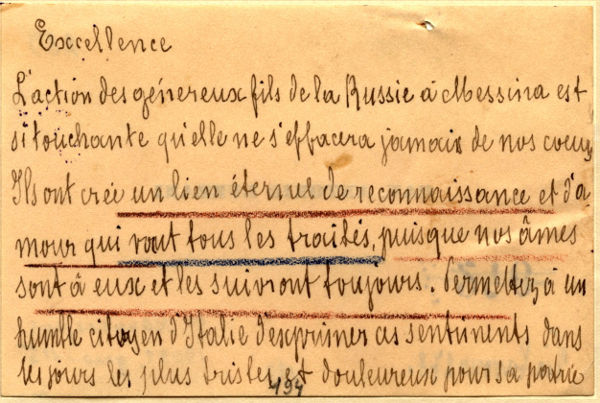 Excellence
L'action des génereux fils de la Russie à Messina est
si touchante qu'elle ne s'effacera jamais de nos coeurs
Ils ont crée un lien éternel de reconnaissance et d'a
mour qui vaut tous les traités, puisque nos âmes
sont à eux et les suivront toujours. Permettez à un
humble citoyen d'Italie d'exprimer ces sentiments dans
les jours les plus tristes et douleureux pour sa patrie
494